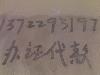 13722793197
办证代款